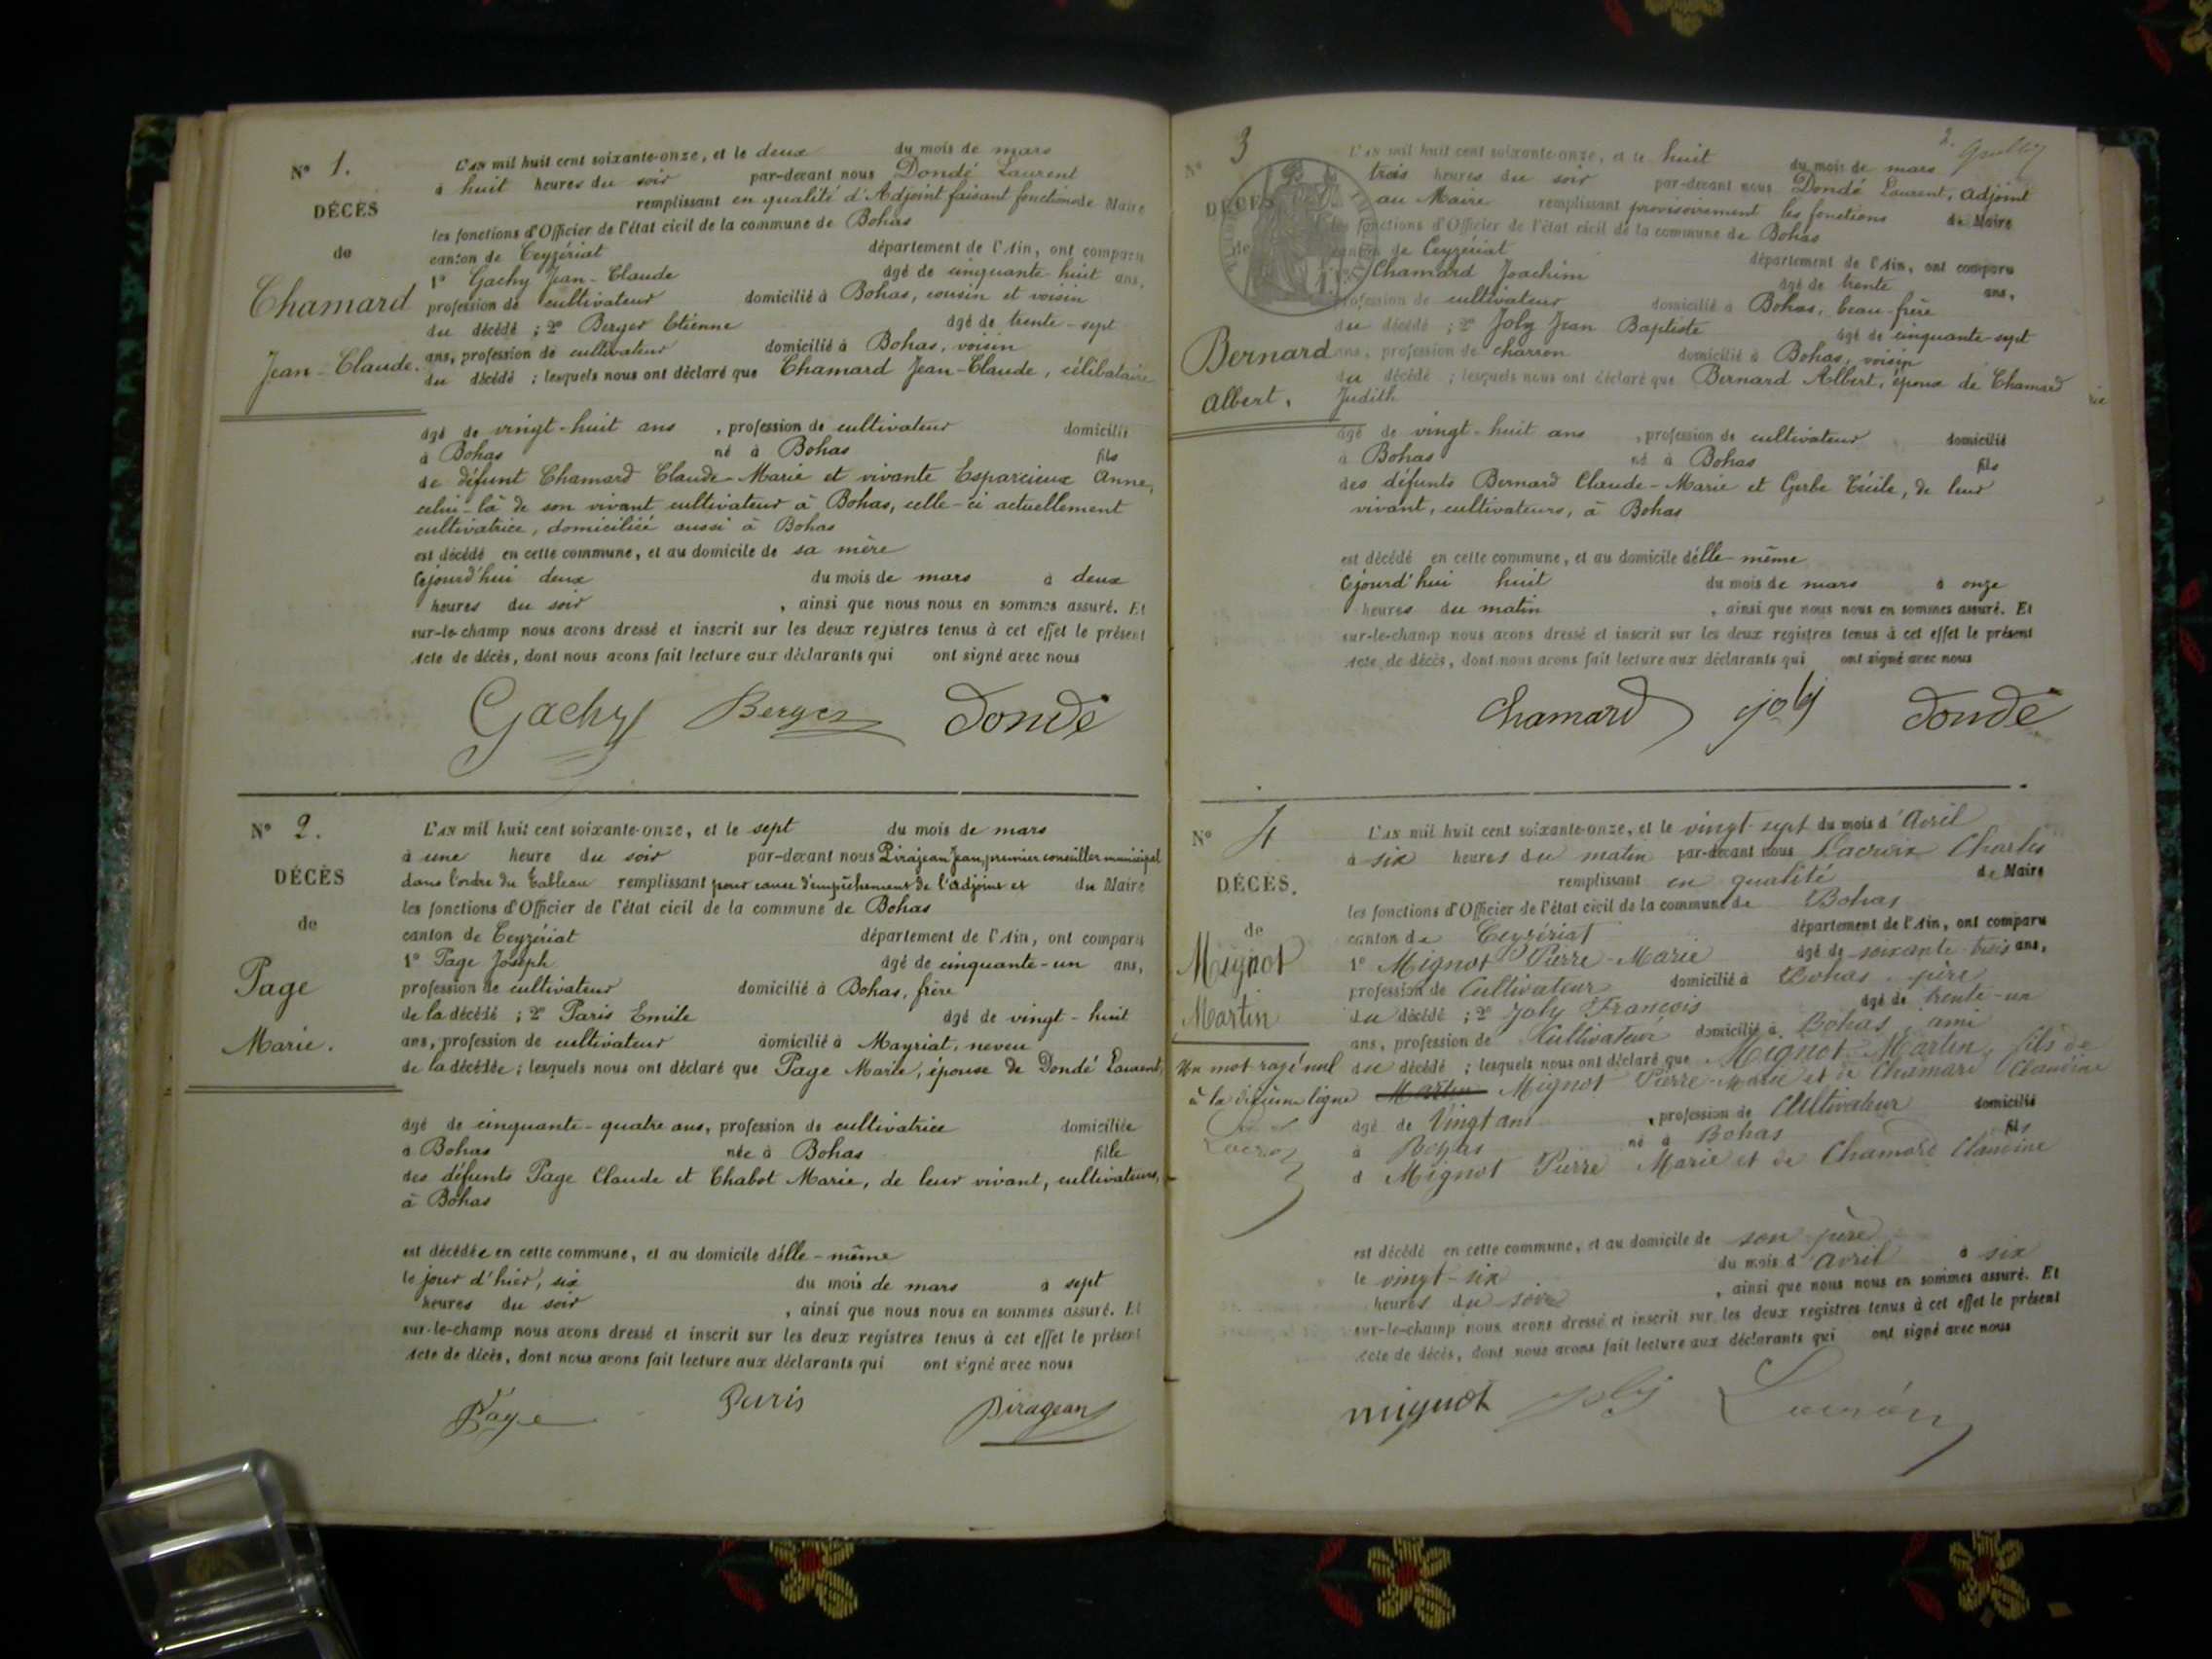 N° 1.
DÉCÈS
de
Chamard
Jean-Claude.
L'AN mil huit cent soixante-onze, et le deux du mois de mars
à huit heures du soir par-devant nous Dondé Laurent
remplissant en qualité d'Adjoint faisant fonction de Maire
les fonctions d'Officier de l'état civil de la commune de Bohas
canton de Ceyzériat département de l'Ain, ont comparu
1° Gachy Jean-Claude âgé de cinquante-huit ans,
profession de cultivateur domicilié à Bohas, cousin et voisin
du décédé ; 2° Berger Etienne âgé de trente-sept
ans, profession de cultivateur domicilié à Bohas, voisin
du décédé ; lesquels nous ont déclaré que Chamard Jean-Claude, célibataire
âgé de vingt-huit ans, profession de cultivateur domicilié
à Bohas né à Bohas fils
de défunt Chamard Claude-Marie et vivante Esparcieux Anne,
celui-là de son vivant cultivateur à Bohas, celle-ci actuellement
cultivatrice, domiciliée aussi à Bohas
est décédé en cette commune, et au domicile de sa mère
cejourd'hui deux du mois de mars à deux
heures du soir, ainsi que nous nous en sommes assuré. Et
sur-le-champ nous avons dressé et inscrit sur les deux registres tenus à cet effet le présent
acte de décès, dont nous avons fait lecture aux déclarants qui ont signé avec nous
Gachy Berger Dondé
N° 2.
DÉCÈS
de
Page
Marie.
L'AN mil huit cent soixante-onze, et le sept du mois de mars
à une heure du soir par-devant nous Pirajean Jean, premier conseiller municipal
dans l'ordre du tableau remplissant pour cause d'empêchement de l'adjoint et du Maire
les fonctions d'Officier de l'état civil de la commune de Bohas
canton de Ceyzériat département de l'Ain, ont comparu
1° Page Joseph âgé de cinquante-un ans,
profession de cultivateur domicilié à Bohas, frère
de la décédé ; 2° Paris Emile âgé de vingt-huit
ans, profession de cultivateur domicilié à Mayriat, neveu
de la décédée ; lesquels nous ont déclaré que Page Marie, épouse de Dondé Laurent,
âgé de cinquante-quatre ans, profession de cultivatrice domiciliée
à Bohas née à Bohas fille
des défunts Page Claude et Chabot Marie, de leur vivant, cultivateurs,
à Bohas
est décédée en cette commune, et au domicile d'elle-même
le jour d'hier, six du mois de mars à sept
heures du soir, ainsi que nous nous en sommes assuré. Et
sur-le-champ nous avons dressé et inscrit sur les deux registres tenus à cet effet le présent
acte de décès, dont nous avons fait lecture aux déclarants qui ont signé avec nous
Page Paris Piragean
2.
N° 3
DÉCÈS
de
Bernard
Albert.
L'AN mil huit cent soixante-onze, et le huit du mois de mars
trois heures du soir par-devant nous Dondé Laurent, adjoint
au Maire remplissant provisoirement les fonctions de Maire
les fonctions d'Officier de l'état civil de la commune de Bohas
canton de Ceyzériat département de l'Ain, ont comparu
1° Chamard Joachim âgé de trente ans,
profession de cultivateur domicilié à Bohas, beau-frère
du décédé ; 2° Joly Jean Baptiste âgé de cinquante-sept
ans, profession de charron domicilié à Bohas, voisin
du décédé ; lesquels nous ont déclaré que Bernard Albert, époux de Chamard
Judith
âgé de vingt-huit ans, profession de cultivateur domicilié
à Bohas né à Bohas fils
des défunts Bernard Claude-Marie et Gerbe Cécile, de leur
vivant, cultivateurs, à Bohas
est décédé en cette commune, et au domicile d'elle-même
cejourd'hui huit du mois de mars à onze
heures du matin, ainsi que nous nous en sommes assuré. Et
sur-le-champ nous avons dressé et inscrit sur les deux registres tenus à cet effet le présent
acte de décès, dont nous avons fait lecture aux déclarants qui ont signé avec nous
Chamard joly Dondé
N° 4
DÉCÈS.
de
Mignot
Martin
Un mot rayé nul
à la dixième ligne
L'AN mil huit cent soixante-onze, et le vingt-sept du mois d'Avril
à six heures du matin par-devant nous Lacroix Charles
remplissant en qualité de Maire
les fonctions d'Officier de l'état civil de la commune de Bohas
canton de Ceyzériat département de l'Ain, ont comparu
1° Mignot Pierre-Marie âgé de soixante trois ans,
profession de Cultivateur domicilié à Bohas père
du décédé ; 2° Joly François âgé de trente-un
ans, profession de Cultivateur domicilié à Bohas, ami
du décédé ; lesquels nous ont déclaré que Mignot Martin, fils de
Martin Mignot Pierre-Marie et de Chamard Claudine
âgé de Vingt ans, profession de Cultivateur domicilié
à Bohas né à Bohas fils
d Mignot Pierre Marie et de Chamard Claudine
est décédé en cette commune, et au domicile de son père
le vingt-six du mois d'avril à six
heures du soir, ainsi que nous nous en sommes assuré. Et
sur-le-champ nous avons dressé et inscrit sur les deux registres tenus à cet effet le présent
acte de décès, dont nous avons fait lecture aux déclarants qui ont signé avec nous
mignot Joly Lacroix